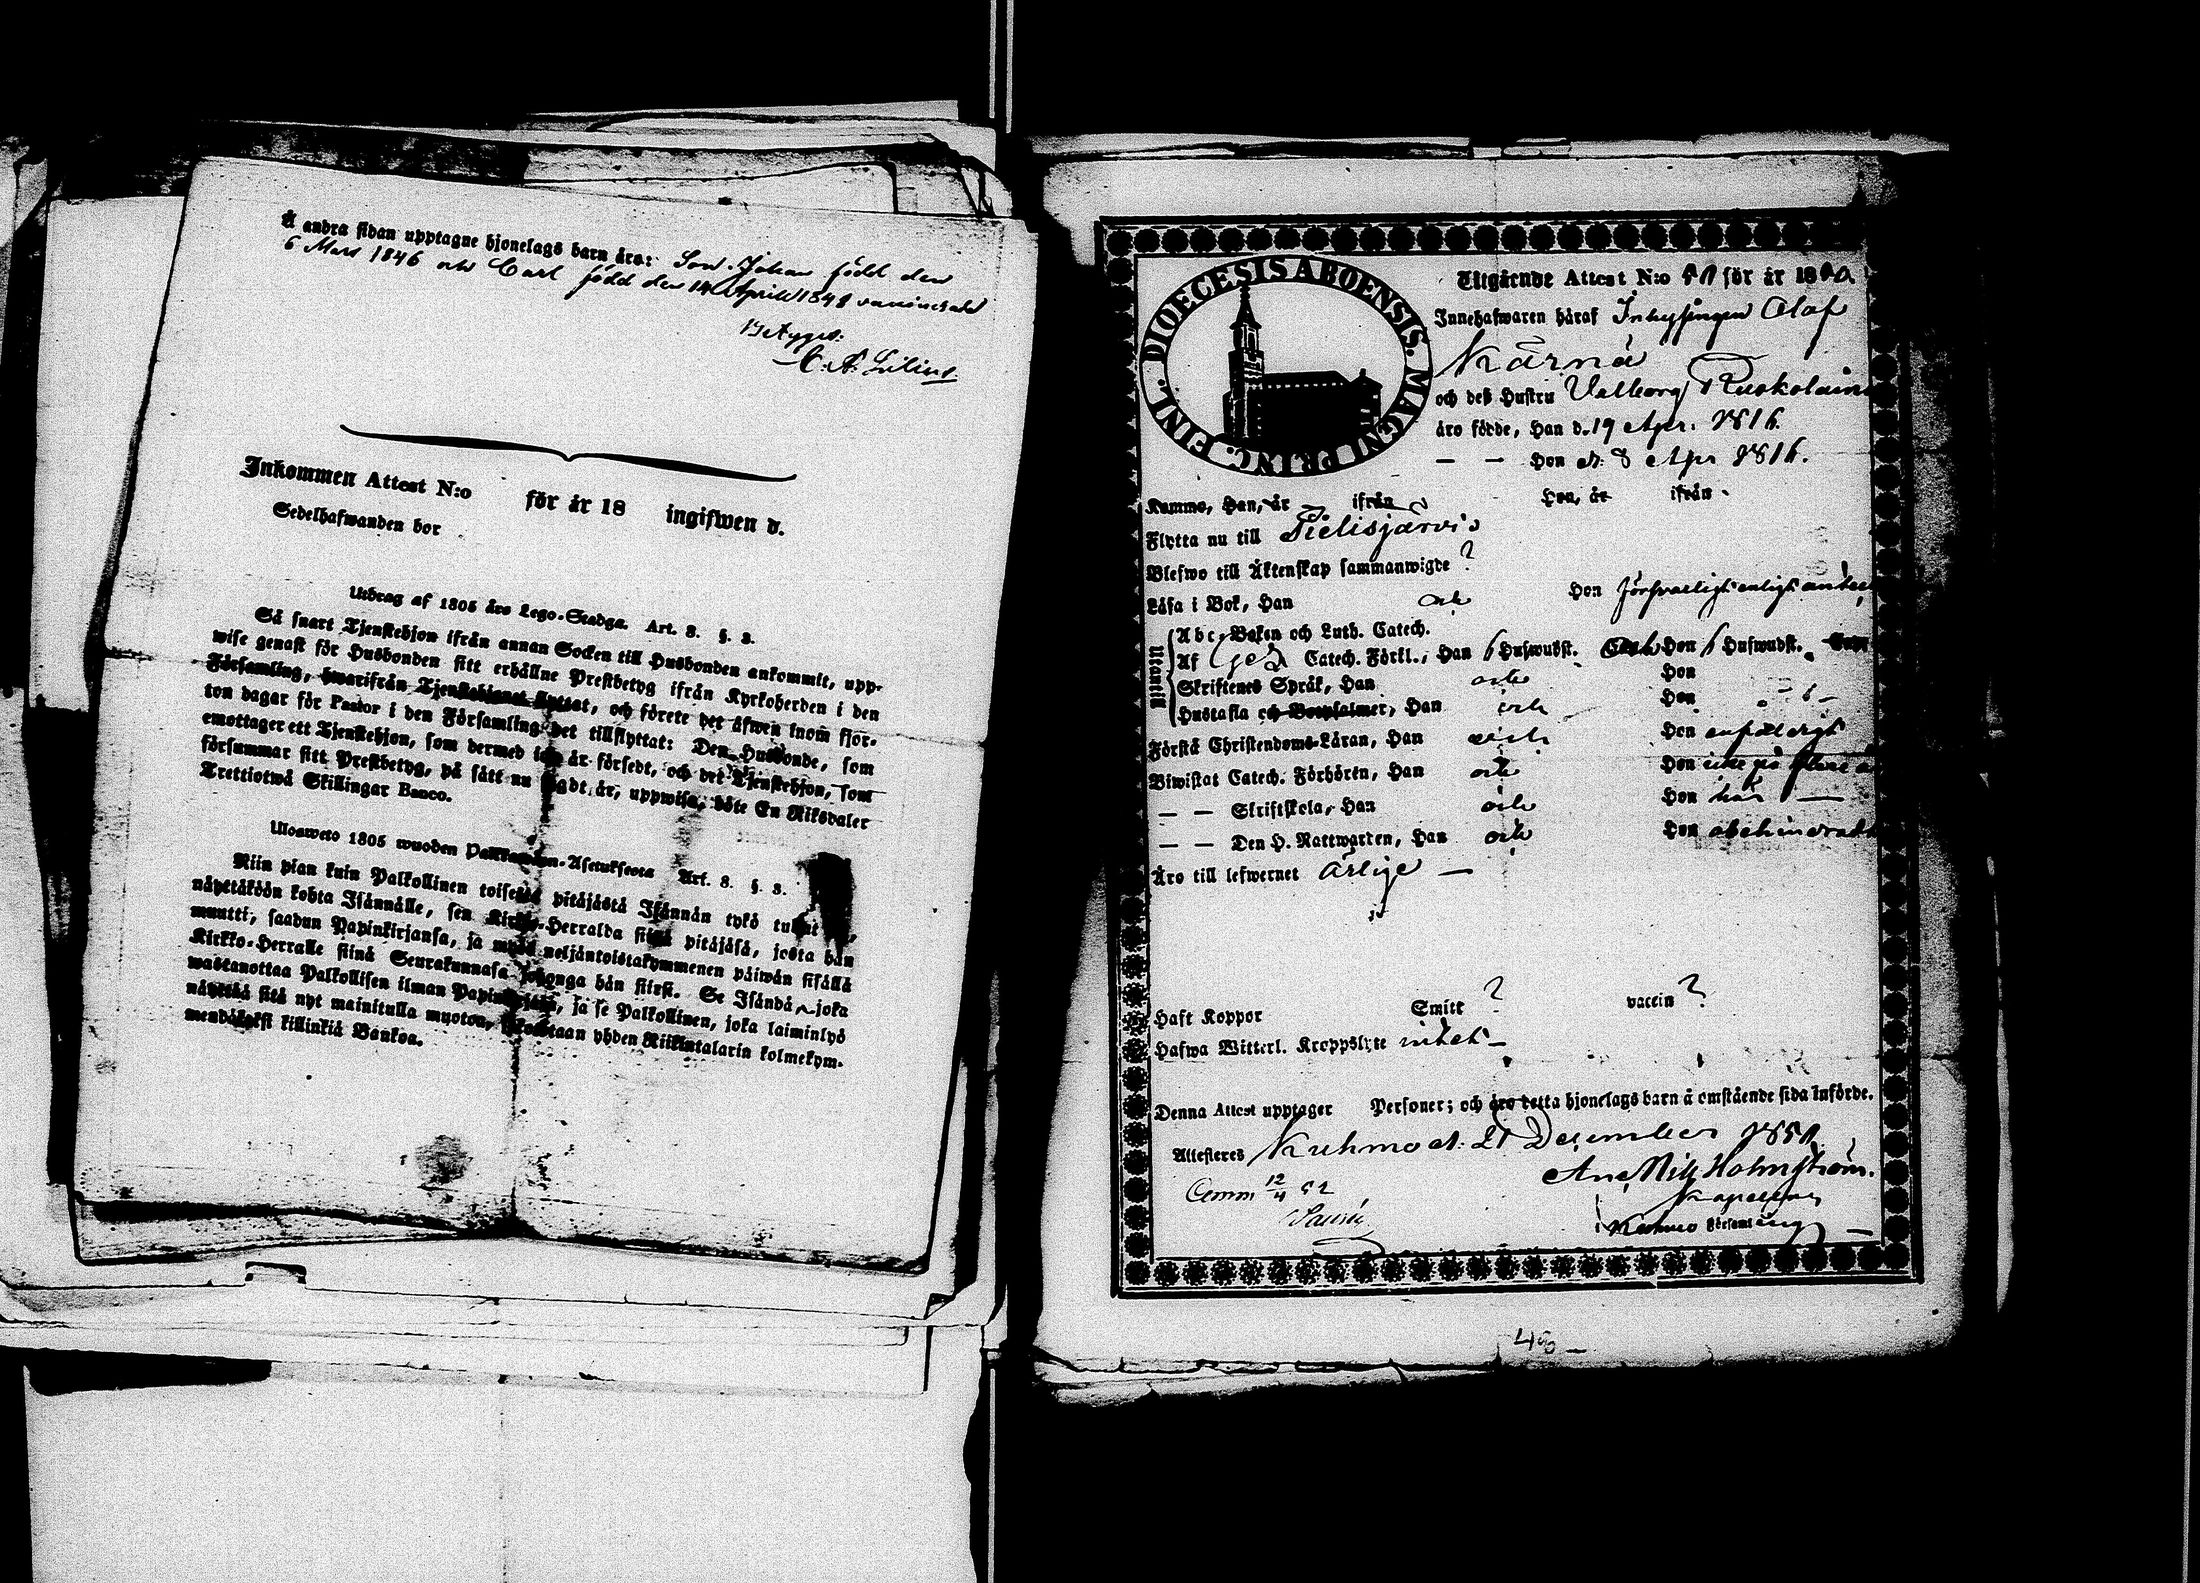 Å andra sidan upptagne hjonelags barn äro: Son Johan född den
6 Mars 1846 och Carl född den 14 April 1848
Betygar:
C. A. Lilius.
Inkommen Attest N:o för år 18 ingifwen d.
Sedelhafwanden bor
Utdrag af 1805 års Lego-Stadga. Art. 8. §. 3.
Så snart Tjenstehjon ifrån annan Socken till Husbonden ankommit, upp-
wise genast för Husbonden sitt erhållne Prestbetyg ifrån Kyrkoherden i den
Församling, hwarifrån Tjenstehjonet flyttat, och förete det äfwen inom fjor-
ton dagar för Pastor i den Församling det tillflyttat: Den Husbonde, som
emottager ett Tjenstehjon, som dermed icke är försedt, och det Tjenstehjon, som
försummar sitt Prestbetyg, på sätt nu sagdt är, uppwisa, böte En Riksdaler
Trettiotwå Skillingar Banco.
Ulosweto 1805 wuoden Palkkawäen-Asetuksesta Art. 8. §. 3.
Niin pian kuin Palkollinen toisesta pitäjästä Isännän tykö tullut
näyttäköön kohta Isännälle, sen Kirkko-Herralda siinä pitäjäsä, josta hän
muutti, saadun Papinkirjansa, ja myös neljäntoistakymmenen päiwän sisällä
Kirkko-Herralle siinä Seurakunnasa johonga hän siirsi. Se Isändä, joka
wastanottaa Palkollisen ilman Papinkirjata, ja se Palkollinen, joka laiminlyö
näyttää sitä nyt mainitulla muoton, sakotetaan yhden Riikintalarin kolmekym-
mendäkaksi killinkiä Bankoa.
DIOECESIS ABOENSIS. MAGNI PRINC. FINL.
Utgående Attest N:o för år 18
Innehafwaren häraf Inhysingen Olof
Kärnä
och deß Hustru Valborg Ruskolain
äro födde, Han d. 19 Apr. 1816.
— — Hon d. 8 Apr 1816.
Kommo, Han, år ifrån Hon, år ifrån
Flytta nu till Pielisjärvi
Blefwo till Äktenskap sammanwigde ?
Läsa i Bok, Han och Hon försvarligt enligt
Utantill
Abc-Boken och Luth. Catech.
Af Catech. Förkl., Han 6 Hufwudst. och Hon 6 Hufwudst.
Skriftenes Språk, Han och Hon
Hustafla och Botpsalmer, Han och Hon
Förstå Christendoms-Läran, Han och Hon enfaldigt
Biwistat Catech. Förhören, Han och Hon icke på flere år
— — Skriftskola, Han och Hon här —
— — Den H. Nattwarden, Han och Hon
Äro till lefwernet ärlige —
Haft Koppor Smitt ? vaccin ?
Hafwa Witterl. Kroppslyte intet —
Denna Attest upptager Personer; och äro detta hjonelags barn å omstående sida införde.
Attesteras Kuhmo d. 21 December 1851.
And. Wilh. Holmström.
Kapellan
i Kuhmo Församling —
Comm 12/4 52
48 —